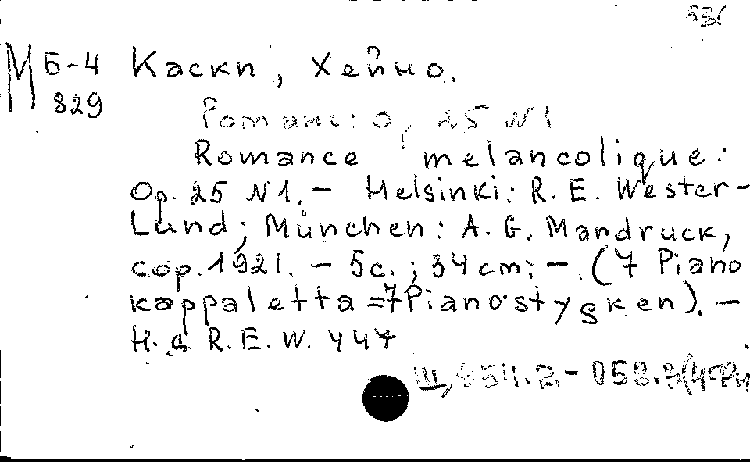 М Б-4 Каски, Хейно.
829
Романс: Op. 25 N1
Romance melancolique:
Op. 25 N1. – Helsinki: R. E. Wester-
Lund; München: A. G. Mandruck,
cop. 1921. – 5c.; 34 cm; –. (7 Piano
kappaletta = 7 Pianostysken). –
H. д. R. E. W. 447